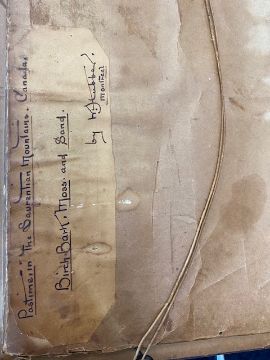 Pastimes in The Laurentian Mountains. Canada.
Birch-Bark, Moss. and Sand.
by
Montreal